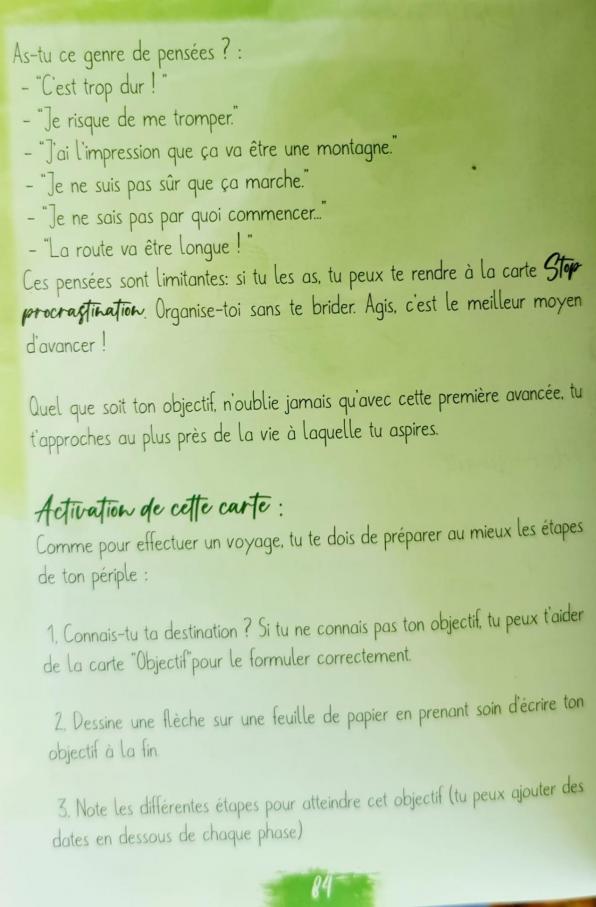 As-tu ce genre de pensées ? :
- "C'est trop dur ! "
- "Je risque de me tromper."
- "J'ai l'impression que ça va être une montagne."
- "Je ne suis pas sûr que ça marche."
- "Je ne sais pas par quoi commencer..."
- "La route va être longue ! "
Ces pensées sont limitantes: si tu les as, tu peux te rendre à la carte Stop
procrastination. Organise-toi sans te brider. Agis, c'est le meilleur moyen
d'avancer !
Quel que soit ton objectif, n'oublie jamais qu'avec cette première avancée, tu
t'approches au plus près de la vie à laquelle tu aspires.
Activation de cette carte :
Comme pour effectuer un voyage, tu te dois de préparer au mieux les étapes
de ton périple :
1. Connais-tu ta destination ? Si tu ne connais pas ton objectif, tu peux t'aider
de la carte "Objectif"pour le formuler correctement.
2. Dessine une flèche sur une feuille de papier en prenant soin d'écrire ton
objectif à la fin
3. Note les différentes étapes pour atteindre cet objectif (tu peux ajouter des
dates en dessous de chaque phase)
84